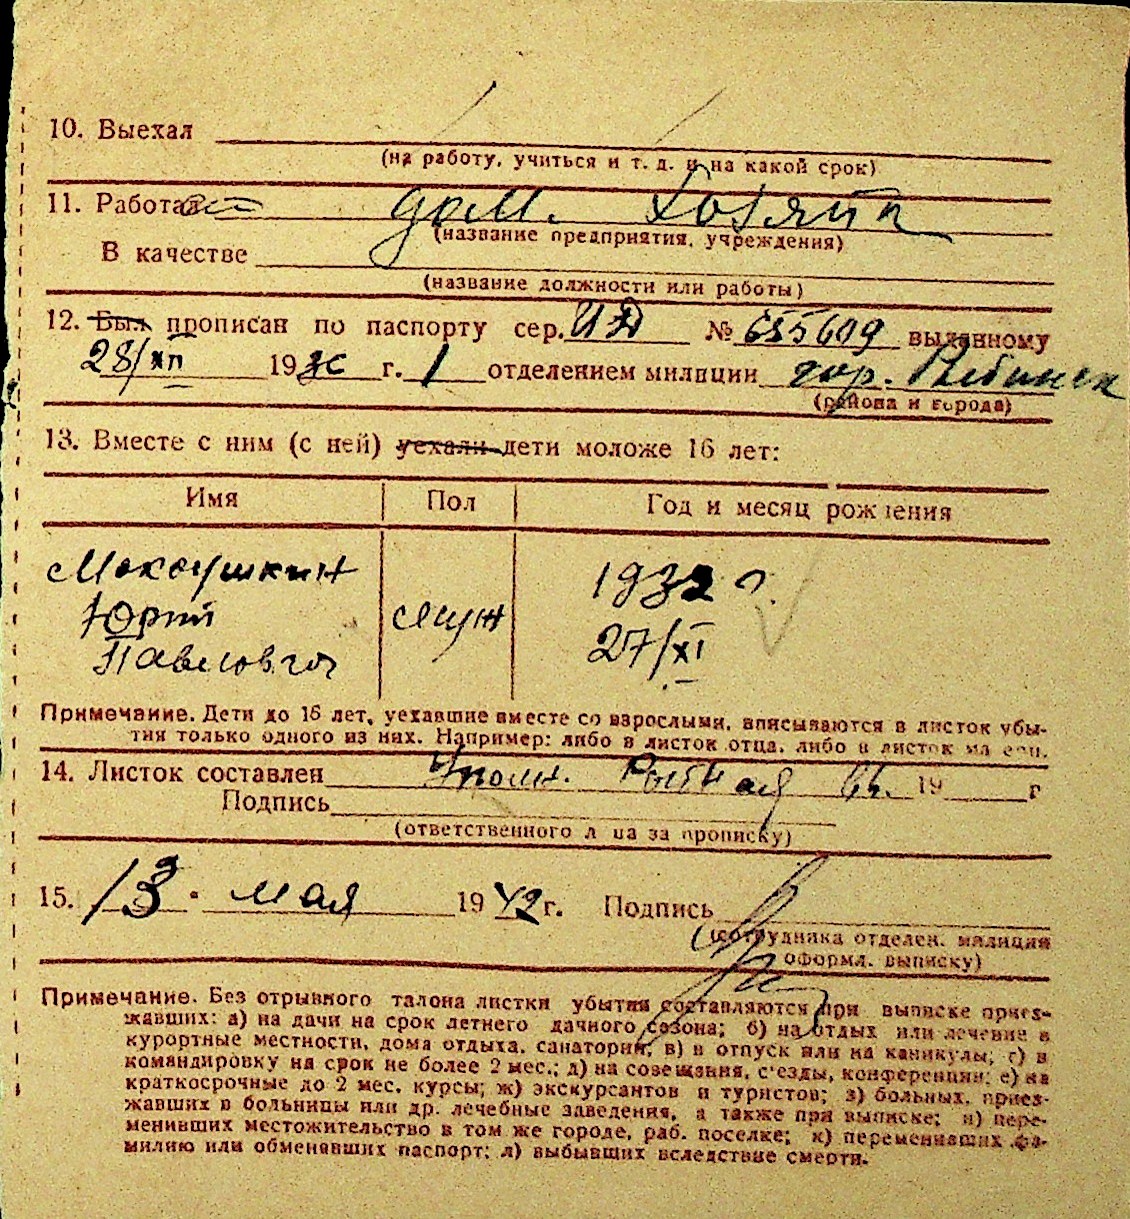 10. Выехал
(на работу, учиться и т. д. и на какой срок)
11. Работает дом. хозяйк
(название предприятия, учреждения)
В качестве
(название должности или работы)
12. Был прописан по паспорту сер. ИД № 655609 выданному
28/XII 1936 г. 1 отделением милиции гор. Рыбинск
(района и города)
13. Вместе с ним (с ней) уехали дети моложе 16 лет:
Имя Пол Год и месяц рождения
1932 г.
Юрий муж
Павлович 27/XI
Примечание. Дети до 16 лет, уехавшие вместе со взрослыми, вписываются в листок убы-
тия только одного из них. Например: либо в листок отца, либо в листок матери.
14. Листок составлен 19 г
Подпись
(ответственного лица за прописку)
15. 13 мая 1942 г. Подпись
(сотрудника отделен. милиции
оформл. выписку)
Примечание. Без отрывного талона листки убытия составляются при выписке приез-
жавших: а) на дачи на срок летнего дачного сезона; б) на отдых или лечение в
курортные местности, дома отдыха, санатории; в) в отпуск или на каникулы; г) в
командировку на срок не более 2 мес.; д) на совещания, с'езды, конференции; е) на
краткосрочные до 2 мес. курсы; ж) экскурсантов и туристов; з) больных, приез-
жавших в больницы или др. лечебные заведения, а также при выписке; и) пере-
менивших местожительство в том же городе, раб. поселке; к) переменивших фа-
милию или обменявших паспорт; л) выбывших вследствие смерти.